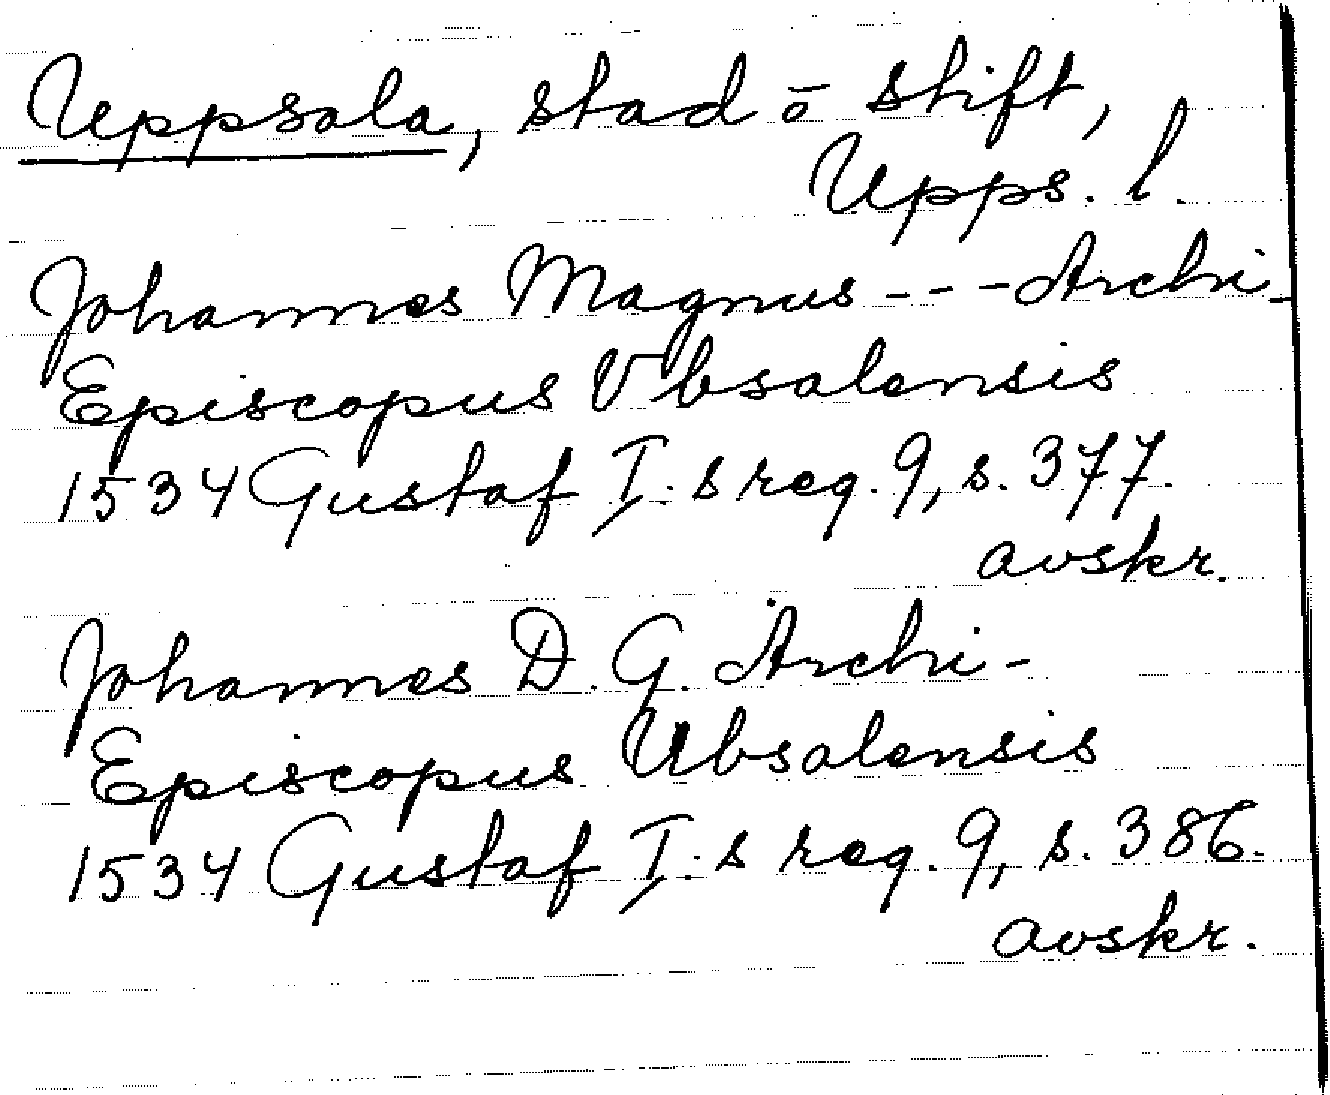 Uppsala, stad ō stift,
Upps. l.
Johannes Magnus --- Archi-
Episcopus Vbsalensis
1534 Gustaf I:s reg. 9, s. 377.
avskr.
Johannes D. G. Archi-
Episcopus Ubsalensis
1534 Gustaf I:s reg. 9, s. 386.
avskr.